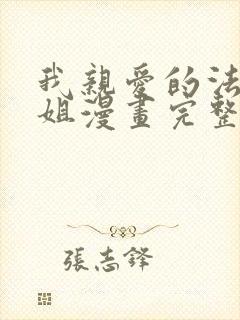 我親愛的法
姐漫畫完整
張志鋒